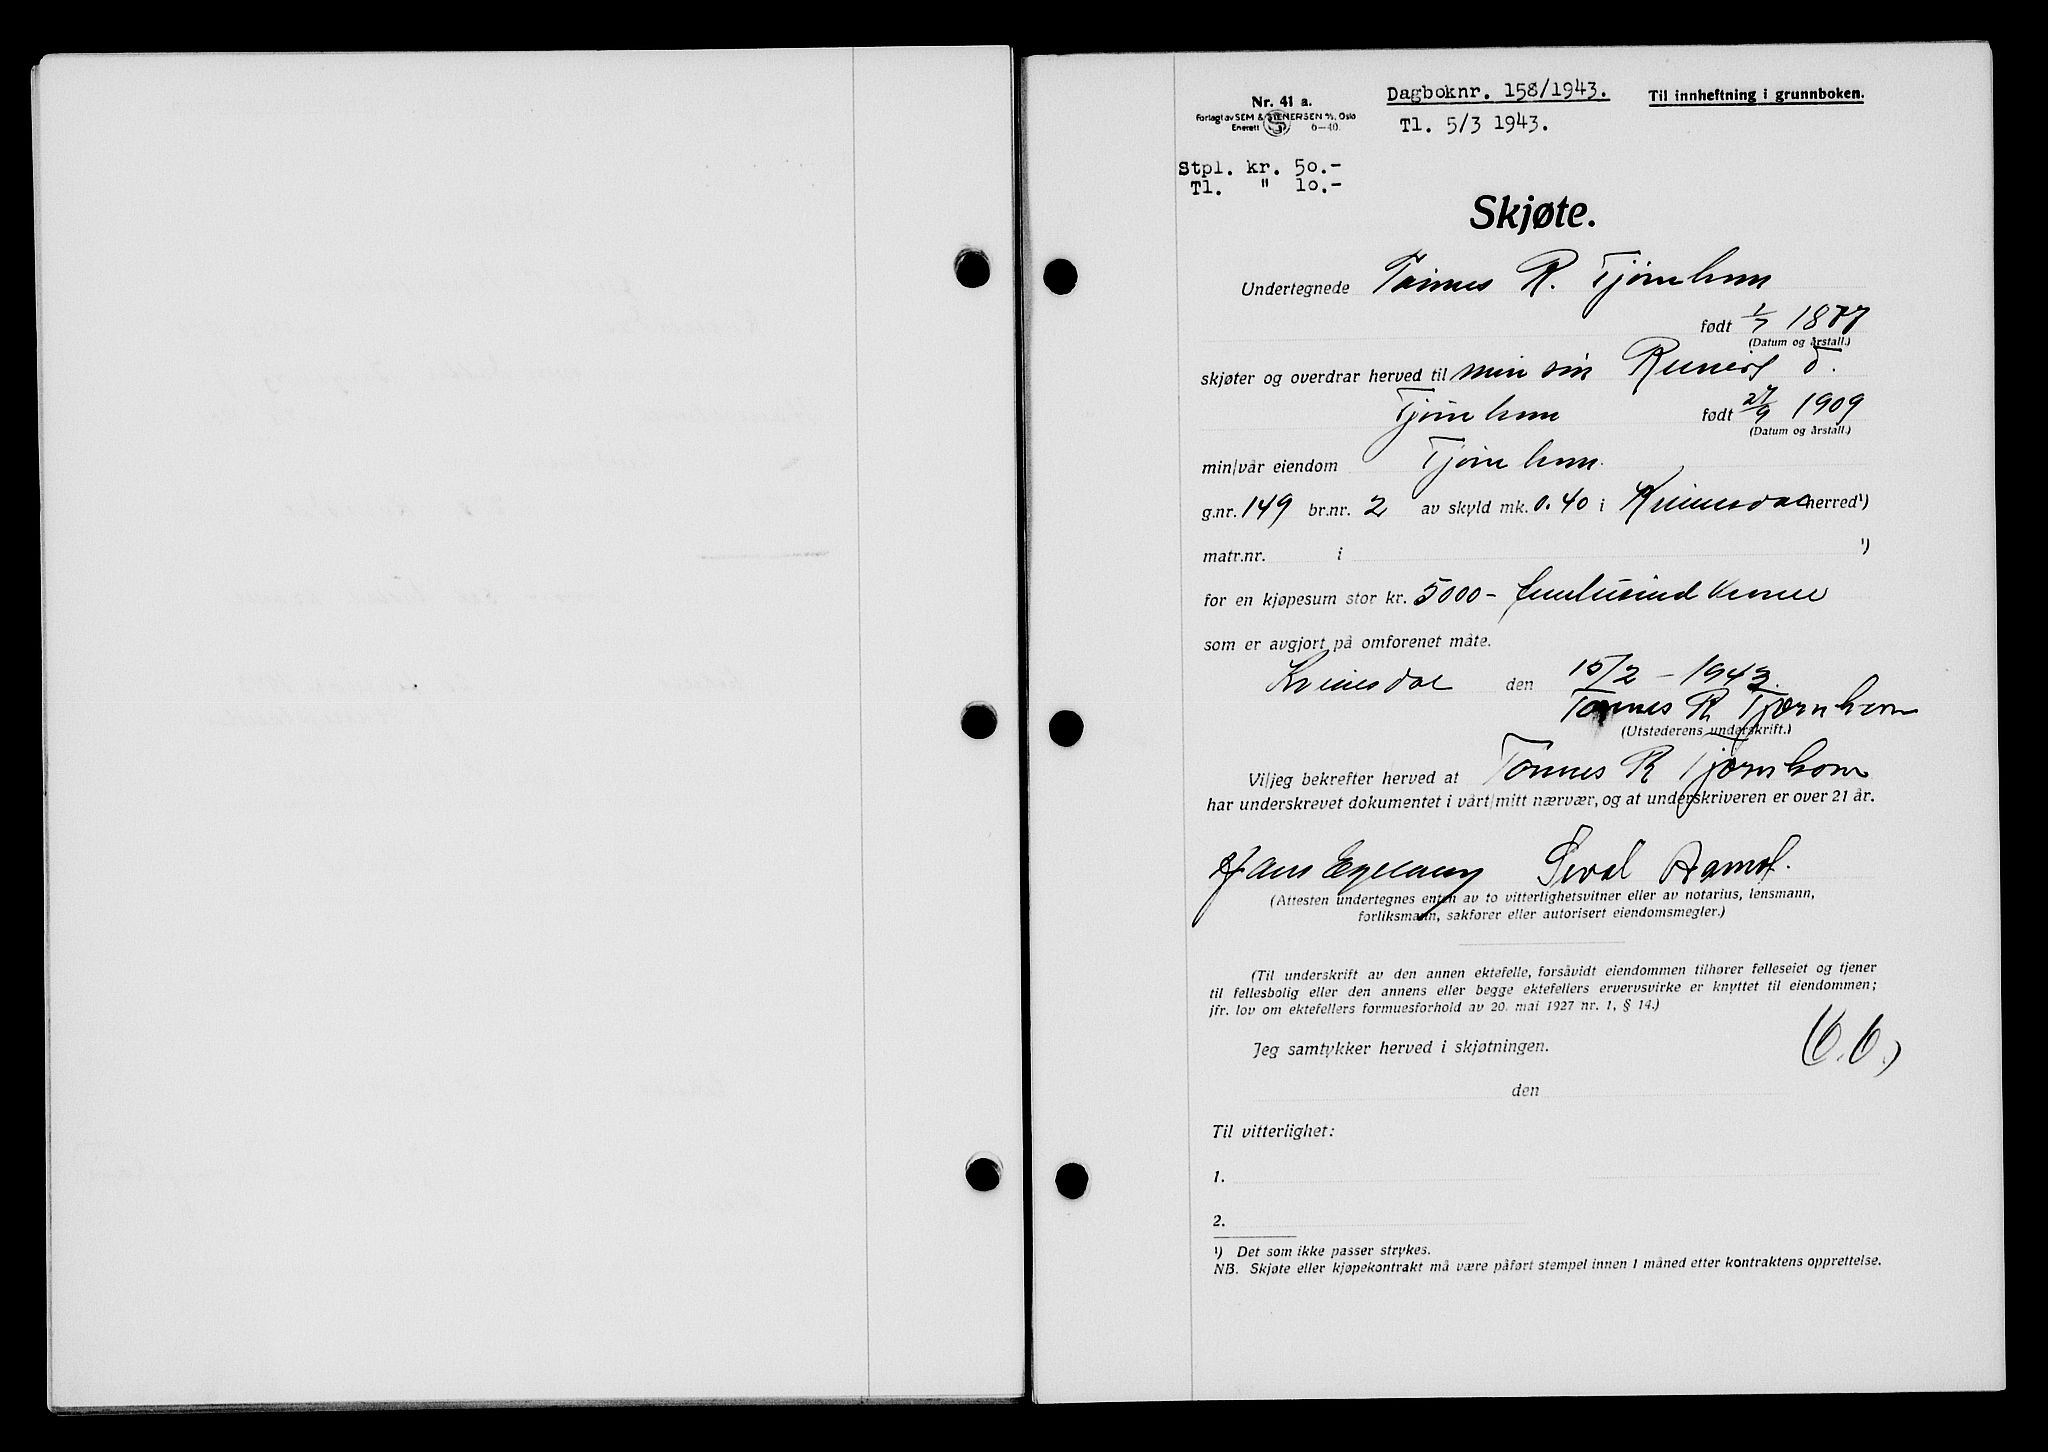 Nr. 41 a.
Forlagt av SEM & STENERSEN A/S, Oslo
Enerett 6—40.
Dagboknr. 158/1943.
Tl. 5/3 1943.
Til innheftning i grunnboken.
Stpl. kr. 50.-
Tl. " 10.-
Skjøte.
Undertegnede Tønnes R. Tjørnhom
født 1/7 1877
(Datum og årstall.)
skjøter og overdrar herved til min søn T.
Tjørnhom født 27/9 1909
(Datum og årstall.)
min/vår eiendom Tjørnhom.
g.nr. 149 br.nr. 2 av skyld mk. 0.40 i Kvinesdal herred¹)
matr.nr. i ¹)
for en kjøpesum stor kr. 5000- femtusind kroner
som er avgjort på omforenet måte.
Kvinesdal den 15/2 - 1943.
Tønnes R Tjørnhom
(Utstederens underskrift.)
Vi/jeg bekrefter herved at Tønnes R Tjørnhom
har underskrevet dokumentet i vårt/mitt nærvær, og at underskriveren er over 21 år.
Hans Egeland Sival Aamot.
(Attesten undertegnes enten av to vitterlighetsvitner eller av notarius, lensmann,
forliksmann, sakfører eller autorisert eiendomsmegler.)
(Til underskrift av den annen ektefelle, forsåvidt eiendommen tilhører felleseiet og tjener
til fellesbolig eller den annens eller begge ektefellers ervervsvirke er knyttet til eiendommen;
jfr. lov om ektefellers formuesforhold av 20. mai 1927 nr. 1, § 14.)
Jeg samtykker herved i skjøtningen.
den
Til vitterlighet:
1.
2.
¹) Det som ikke passer strykes.
NB. Skjøte eller kjøpekontrakt må være påført stempel innen 1 måned etter kontraktens opprettelse.